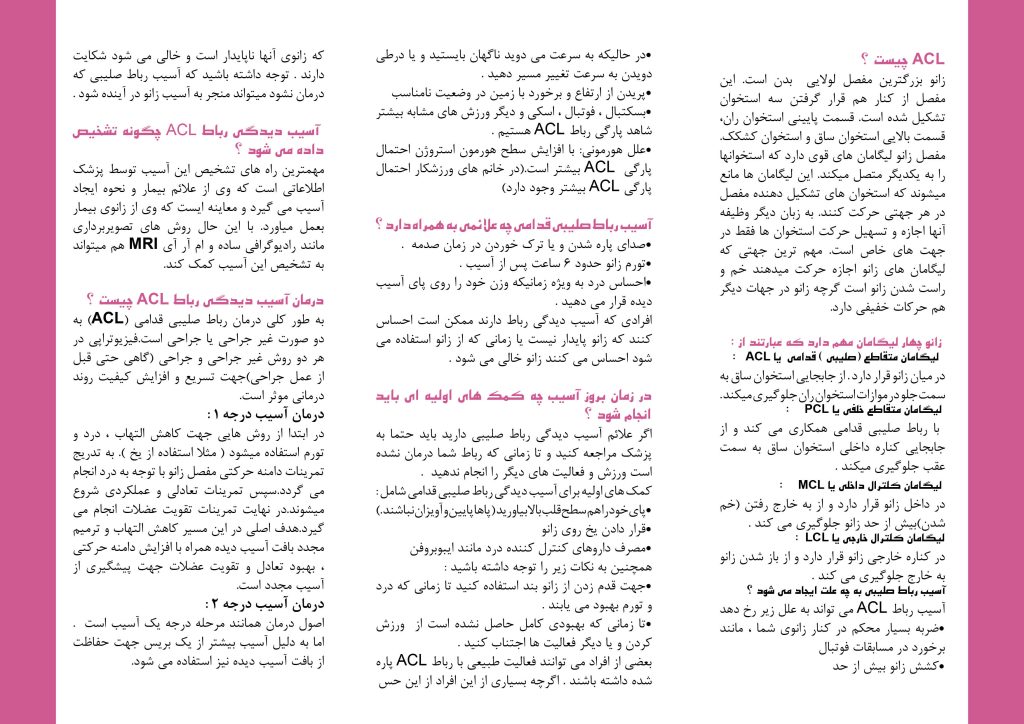 ACL چیست ؟
زانو بزرگترین مفصل لولایی بدن است. این
مفصل از کنار هم قرار گرفتن سه استخوان
تشکیل شده است. قسمت پایینی استخوان ران،
قسمت بالایی استخوان ساق و استخوان کشکک.
مفصل زانو لیگامان های قوی دارد که استخوانها
را به یکدیگر متصل میکند. این لیگامان ها مانع
میشوند که استخوان های تشکیل دهنده مفصل
در هر جهتی حرکت کنند. به زبان دیگر وظیفه
آنها اجازه و تسهیل حرکت استخوان ها فقط در
جهت های خاص است. مهم ترین جهتی که
لیگامان های زانو اجازه حرکت میدهند خم و
راست شدن زانو است گرچه زانو در جهات دیگر
هم حرکات خفیفی دارد.
زانو چهار لیگامان مهم دارد که عبارتند از :
لیگامان متقاطع (صلیبی ) قدامی یا ACL :
در میان زانو قرار دارد . از جابجایی استخوان ساق به
سمت جلو در موازات استخوان ران جلوگیری میکند.
لیگامان متقاطع خلفی یا PCL :
با رباط صلیبی قدامی همکاری می کند و از
جابجایی کناره داخلی استخوان ساق به سمت
عقب جلوگیری میکند .
لیگامان کلترال داخلی یا MCL :
در داخل زانو قرار دارد و از به خارج رفتن (خم
شدن)بیش از حد زانو جلوگیری می کند .
لیگامان کلترال خارجی یا LCL :
در کناره خارجی زانو قرار دارد و از باز شدن زانو
به خارج جلوگیری می کند .
آسیب رباط صلیبی به چه علت ایجاد می شود ؟
آسیب رباط ACL می تواند به علل زیر رخ دهد
•ضربه بسیار محکم در کنار زانوی شما ، مانند
برخورد در مسابقات فوتبال
•کشش زانو بیش از حد
•در حالیکه به سرعت می دوید ناگهان بایستید و یا درطی
دویدن به سرعت تغییر مسیر دهید .
•پریدن از ارتفاع و برخورد با زمین در وضعیت نامناسب
•بسکتبال ، فوتبال ، اسکی و دیگر ورزش های مشابه بیشتر
شاهد پارگی رباط ACL هستیم .
•علل هورمونی: با افزایش سطح هورمون استروژن احتمال
پارگی ACL بیشتر است.(در خانم های ورزشکار احتمال
پارگی ACL بیشتر وجود دارد)
آسیب رباط صلیبی قدامی چه علائمی به همراه دارد ؟
•صدای پاره شدن و یا ترک خوردن در زمان صدمه .
•تورم زانو حدود ۶ ساعت پس از آسیب .
•احساس درد به ویژه زمانیکه وزن خود را روی پای آسیب
دیده قرار می دهید .
افرادی که آسیب دیدگی رباط دارند ممکن است احساس
کنند که زانو پایدار نیست یا زمانی که از زانو استفاده می
شود احساس می کنند زانو خالی می شود .
در زمان بروز آسیب چه کمک های اولیه ای باید
انجام شود ؟
اگر علائم آسیب دیدگی رباط صلیبی دارید باید حتما به
پزشک مراجعه کنید و تا زمانی که رباط شما درمان نشده
است ورزش و فعالیت های دیگر را انجام ندهید .
کمک های اولیه برای آسیب دیدگی رباط صلیبی قدامی شامل :
•پای خود را هم سطح قلب بالا بیاورید (پاها پایین و آویزان نباشند.)
•قرار دادن یخ روی زانو
•مصرف داروهای کنترل کننده درد مانند ایبوبروفن
همچنین به نکات زیر را توجه داشته باشید :
•جهت قدم زدن از زانو بند استفاده کنید تا زمانی که درد
و تورم بهبود می یابند .
•تا زمانی که بهبودی کامل حاصل نشده است از ورزش
کردن و یا دیگر فعالیت ها اجتناب کنید .
بعضی از افراد می توانند فعالیت طبیعی با رباط ACL پاره
شده داشته باشند . اگرچه بسیاری از این افراد از این حس
که زانوی آنها ناپایدار است و خالی می شود شکایت
دارند . توجه داشته باشید که آسیب رباط صلیبی که
درمان نشود میتواند منجر به آسیب زانو در آینده شود .
آسیب دیدگی رباط ACL چگونه تشخیص
داده می شود ؟
مهمترین راه های تشخیص این آسیب توسط پزشک
اطلاعاتی است که وی از علائم بیمار و نحوه ایجاد
آسیب می گیرد و معاینه ایست که وی از زانوی بیمار
بعمل میاورد. با این حال روش های تصویربرداری
مانند رادیوگرافی ساده و ام آر آی MRI هم میتواند
به تشخیص این آسیب کمک کند.
درمان آسیب دیدگی رباط ACL چیست ؟
به طور کلی درمان رباط صلیبی قدامی (ACL) به
دو صورت غیر جراحی یا جراحی است.فیزیوتراپی در
هر دو روش غیر جراحی و جراحی (گاهی حتی قبل
از عمل جراحی)جهت تسریع و افزایش کیفیت روند
درمانی موثر است.
درمان آسیب درجه ۱ :
در ابتدا از روش هایی جهت کاهش التهاب ، درد و
تورم استفاده میشود ( مثلا استفاده از یخ ). به تدریج
تمرینات دامنه حرکتی مفصل زانو با توجه به درد انجام
می گردد.سپس تمرینات تعادلی و عملکردی شروع
میشوند.در نهایت تمرینات تقویت عضلات انجام می
گیرد.هدف اصلی در این مسیر کاهش التهاب و ترمیم
مجدد بافت آسیب دیده همراه با افزایش دامنه حرکتی
، بهبود تعادل و تقویت عضلات جهت پیشگیری از
آسیب مجدد است.
درمان آسیب درجه ۲ :
اصول درمان همانند مرحله درجه یک آسیب است .
اما به دلیل آسیب بیشتر از یک بریس جهت حفاظت
از بافت آسیب دیده نیز استفاده می شود.